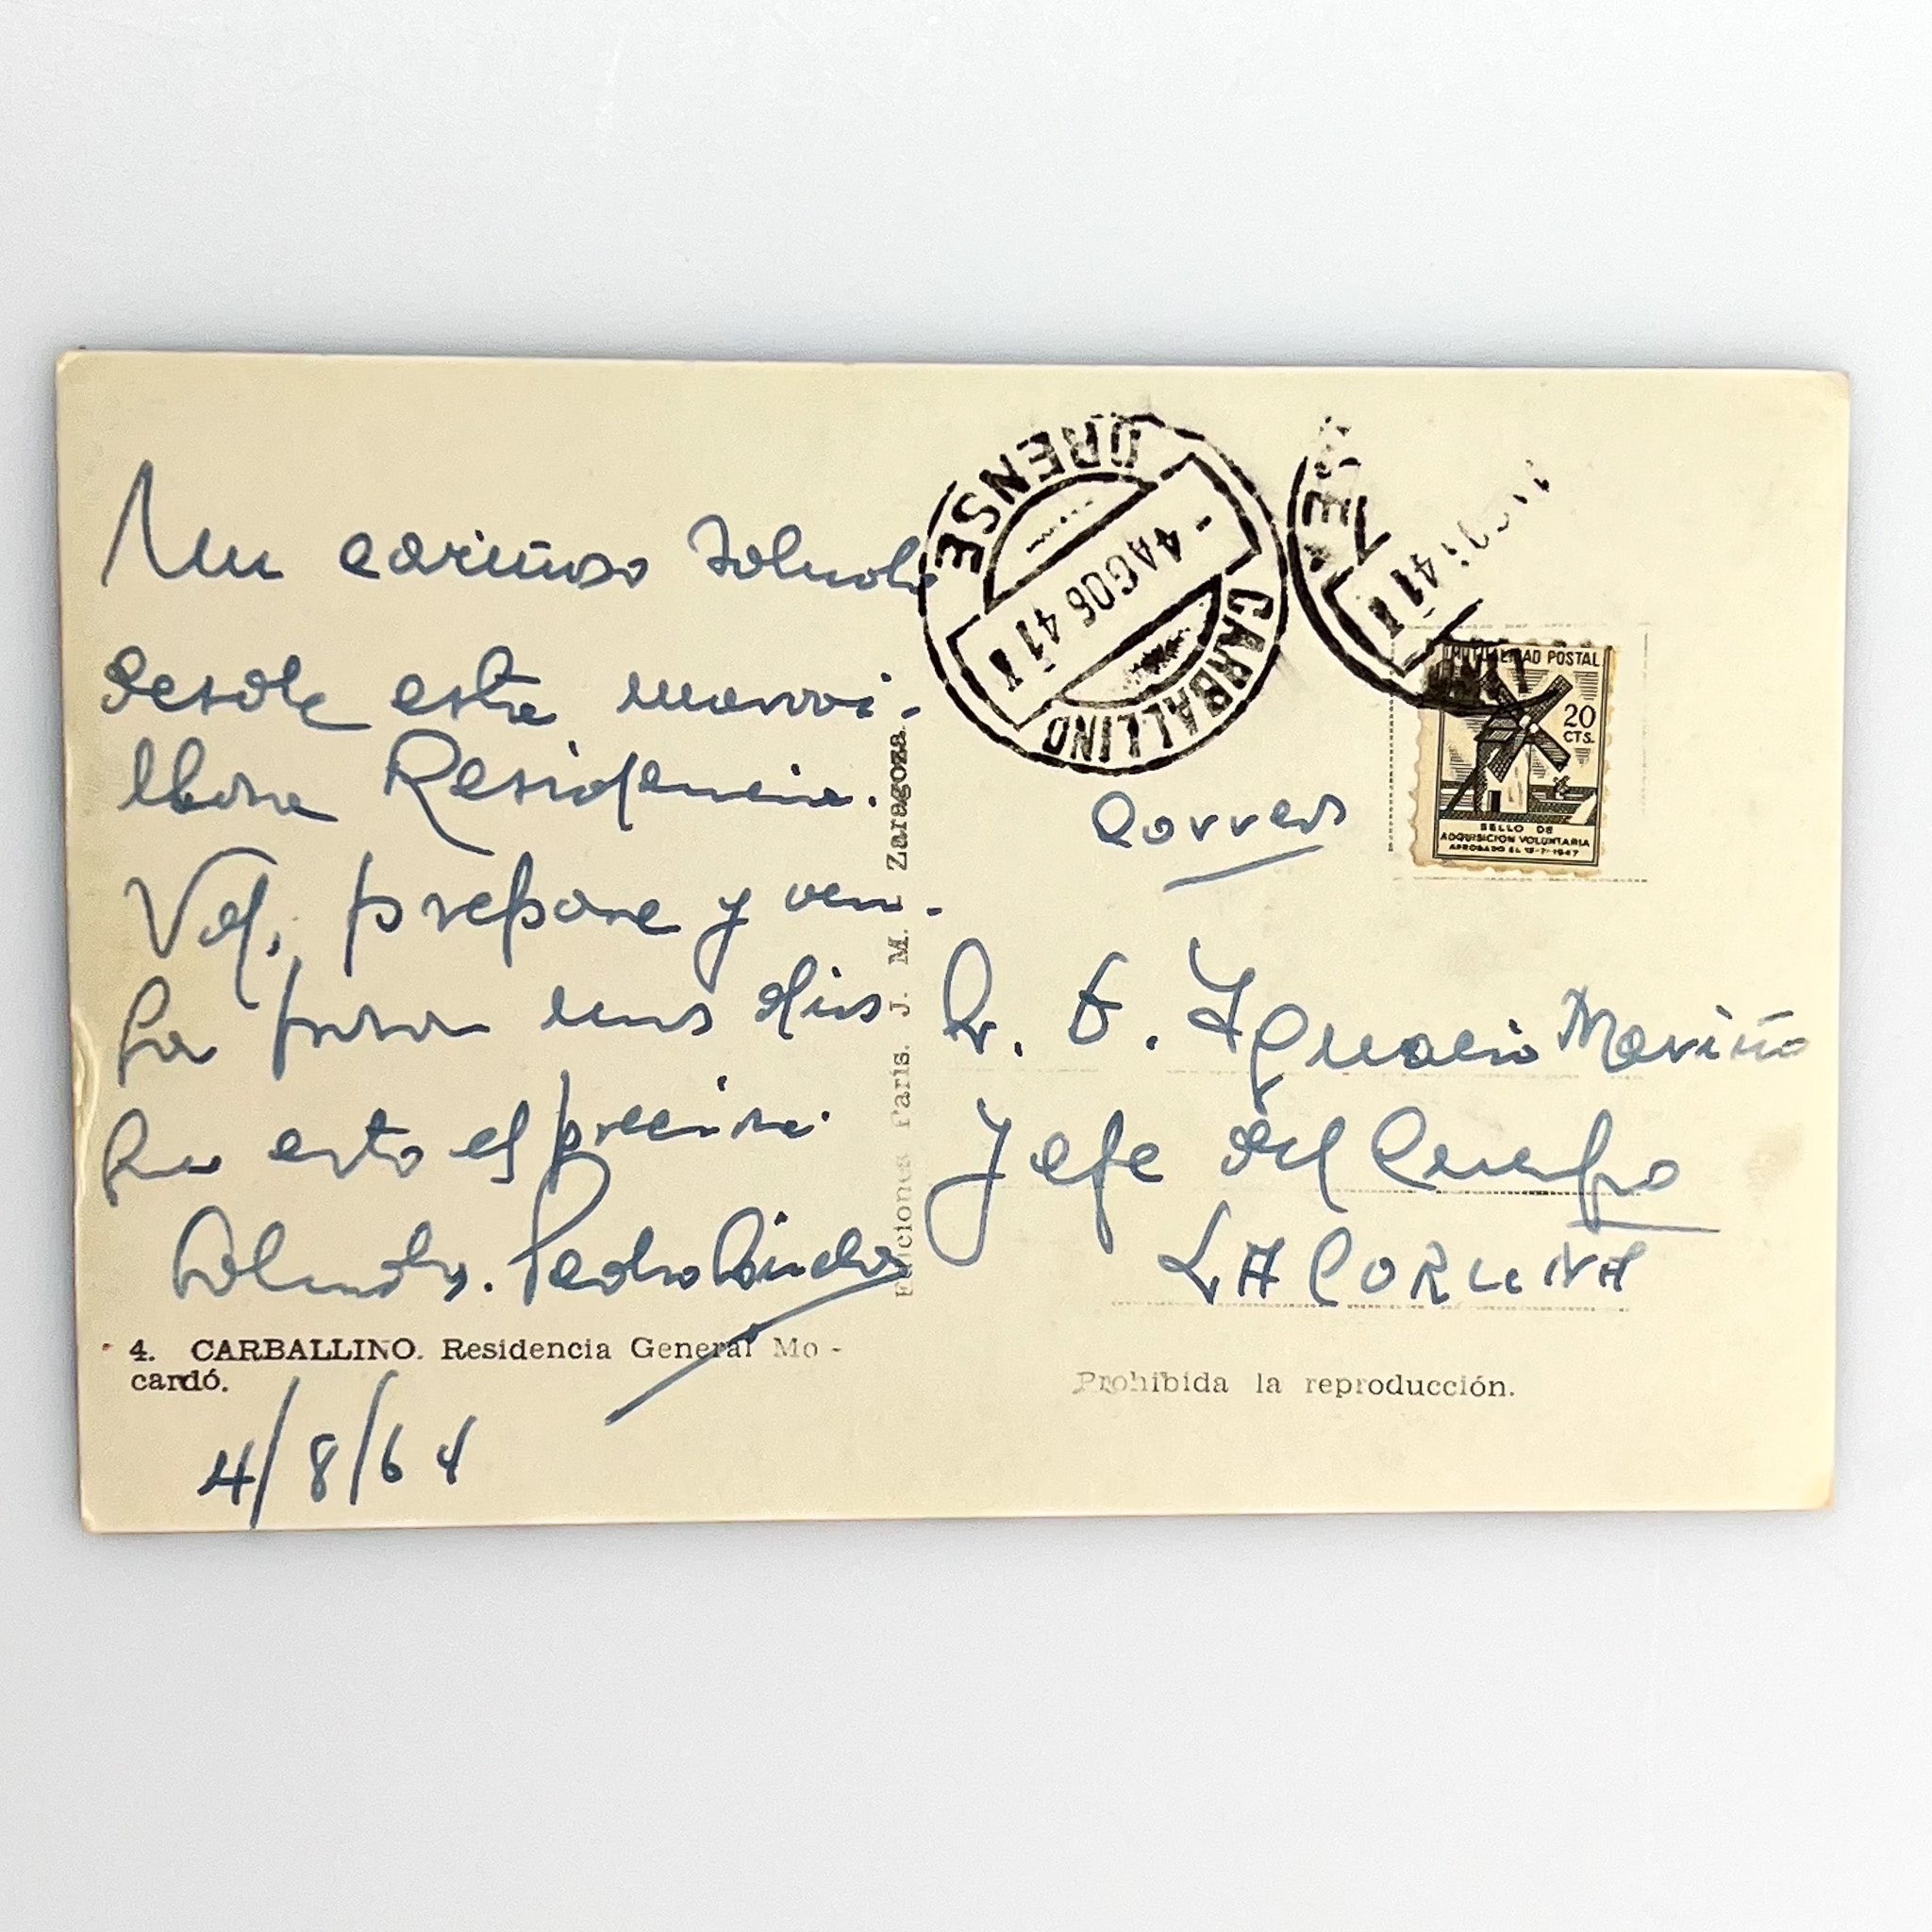 Un cariñoso saludo
desde esta maravi-
llosa Residencia.
Vd. prepare y ven-
ga pasar unos dias
que esto es precioso
Saludos. Pedro
4. CARBALLINO. Residencia General Mo-
cardó.
4/8/64
Ediciones París. J. M. Zaragoza.
ORENSE
CARBALLINO
- 4 AGO 64 11
SE
64 11
MUTUALIDAD POSTAL
20
CTS.
SELLO DE
ADQUISICION VOLUNTARIA
APROBADO EL 15-7-1947
Correos
Sr. D. Ignacio Mariño
Jefe del Cuerpo
LA CORUÑA
Prohibida la reproducción.